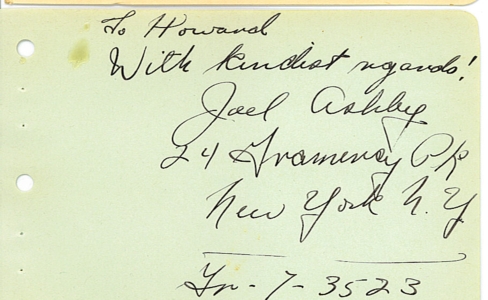 To Howard
With kindest regards!
Joel Ashley
24 Gramercy Pk
New York N.Y
Gr-7-3523